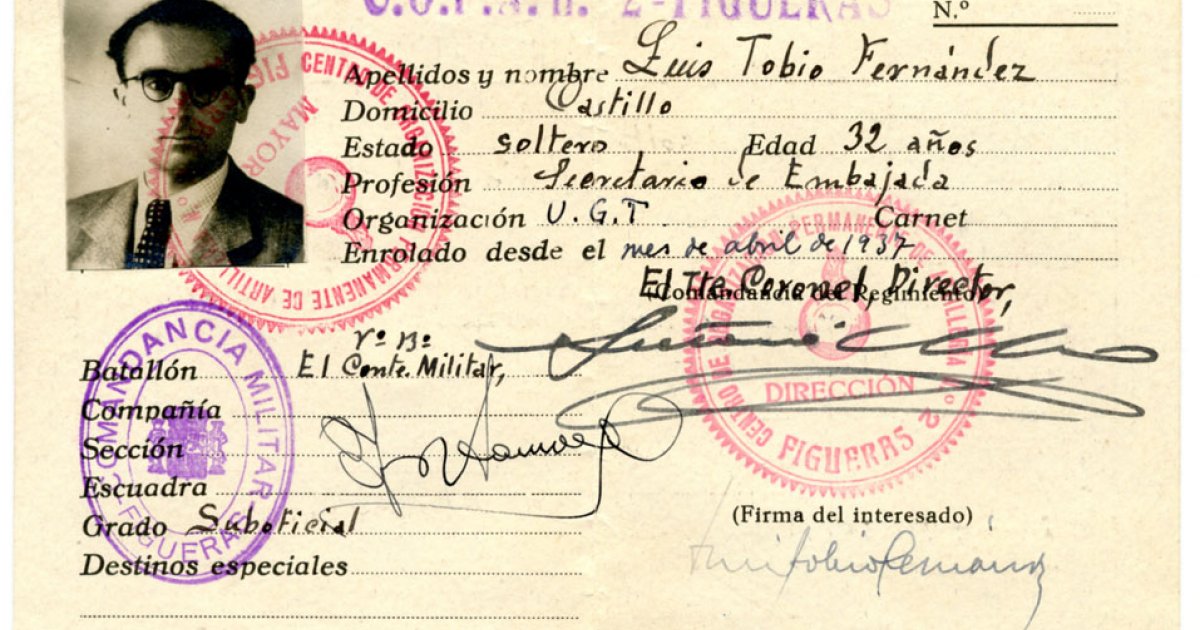 C.O.P.A.n. 2-FIGUERAS
N.º
Apellidos y nombre Luis Tobio Fernández
Domicilio Castillo
Estado soltero Edad 32 años
Profesión Secretario de Embajada
Organización U.G.T Carnet
Enrolado desde el mes de abril de 1937
El Tte. Coronel, Director,
(Comandancia del Regimiento)
Vº Bº
Batallón El Cmte. Militar,
Compañía
Sección
Escuadra
Grado Suboficial
Destinos especiales
(Firma del interesado)
Luis Tobio Fernández
CENTRO DE ORGANIZACIÓN PERMANENTE DE ARTILLERIA Nº 2
FIGUERAS
MAYOR
COMANDANCIA MILITAR
FIGUERAS
CENTRO DE ORGANIZACIÓN PERMANENTE DE ARTILLERIA Nº 2
DIRECCIÓN
FIGUERAS